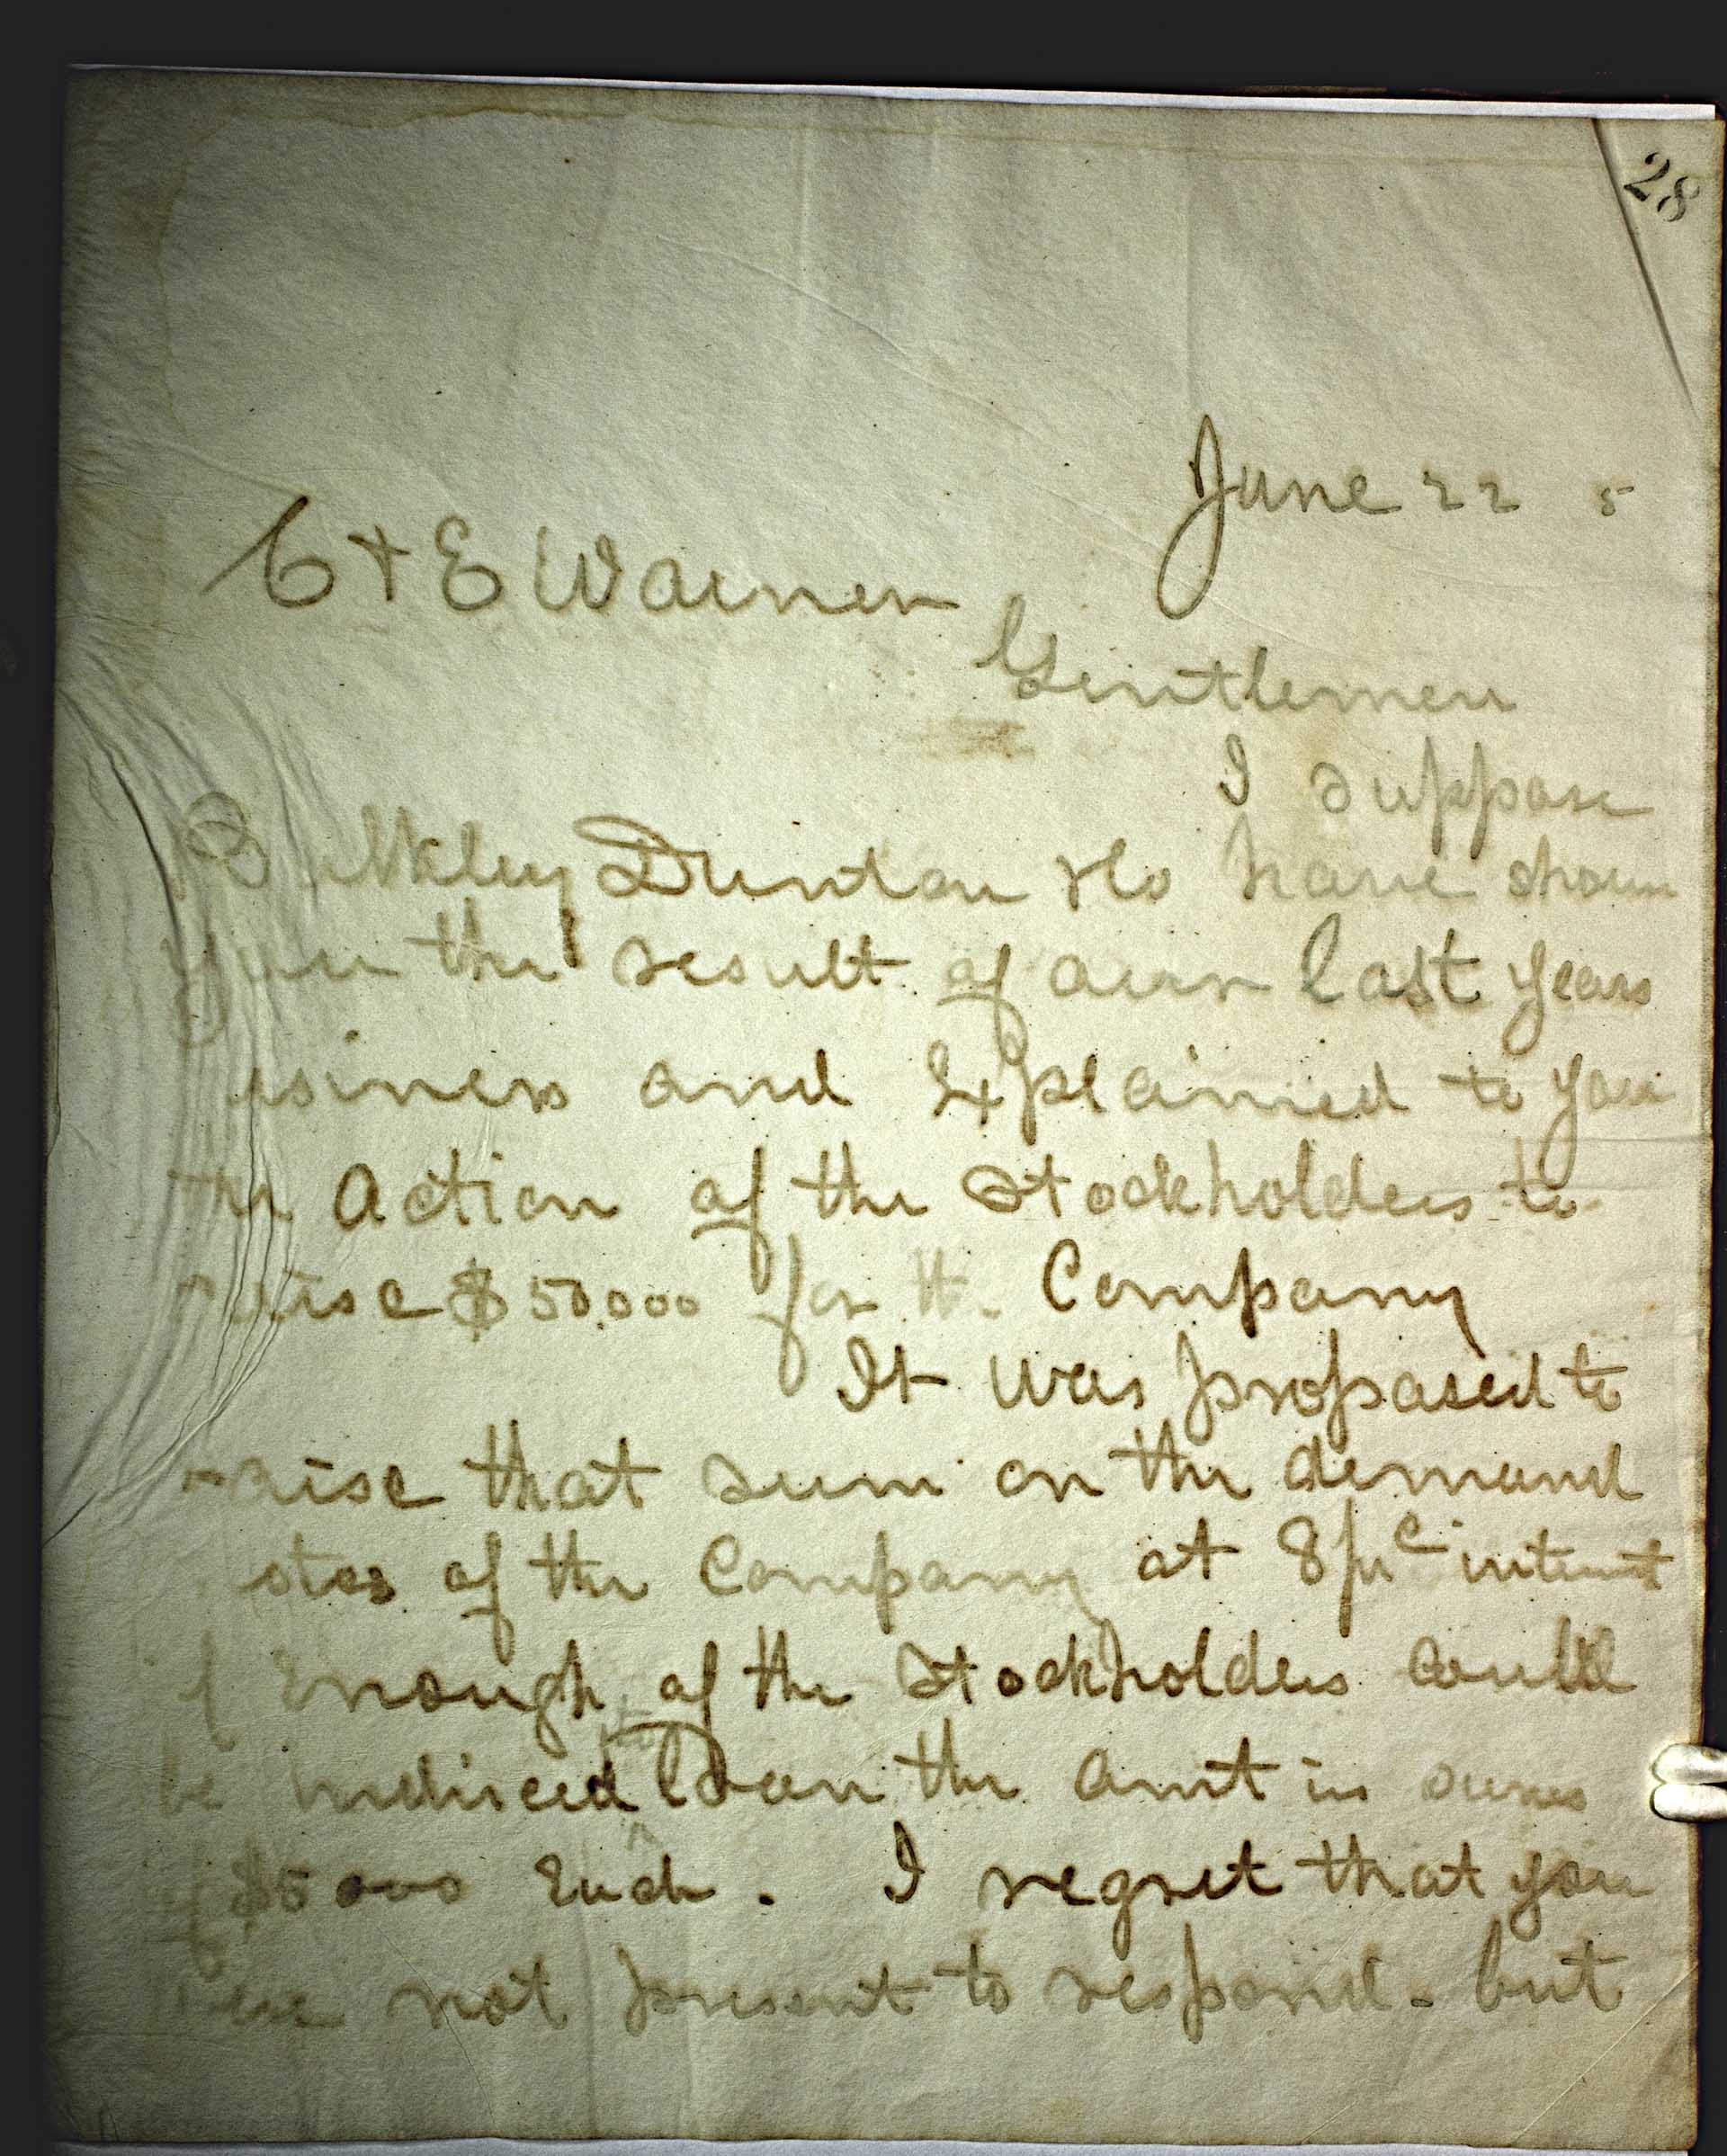 28
June 22 5
C & E Warner
Gentlemen
I suppose
Bulkley Dunton & Co have shown
you the result of our last years
usiness and Explained to you
the Action of the Stockholders to
raise $50,000 for the Company
It was proposed to
raise that sum on the demand
otes of the Company at 8 pr ct interest
if Enough of the Stockholders could
be induced to Loan the Amt in sums
of $5000 Each. I regret that you
were not present to respond - but